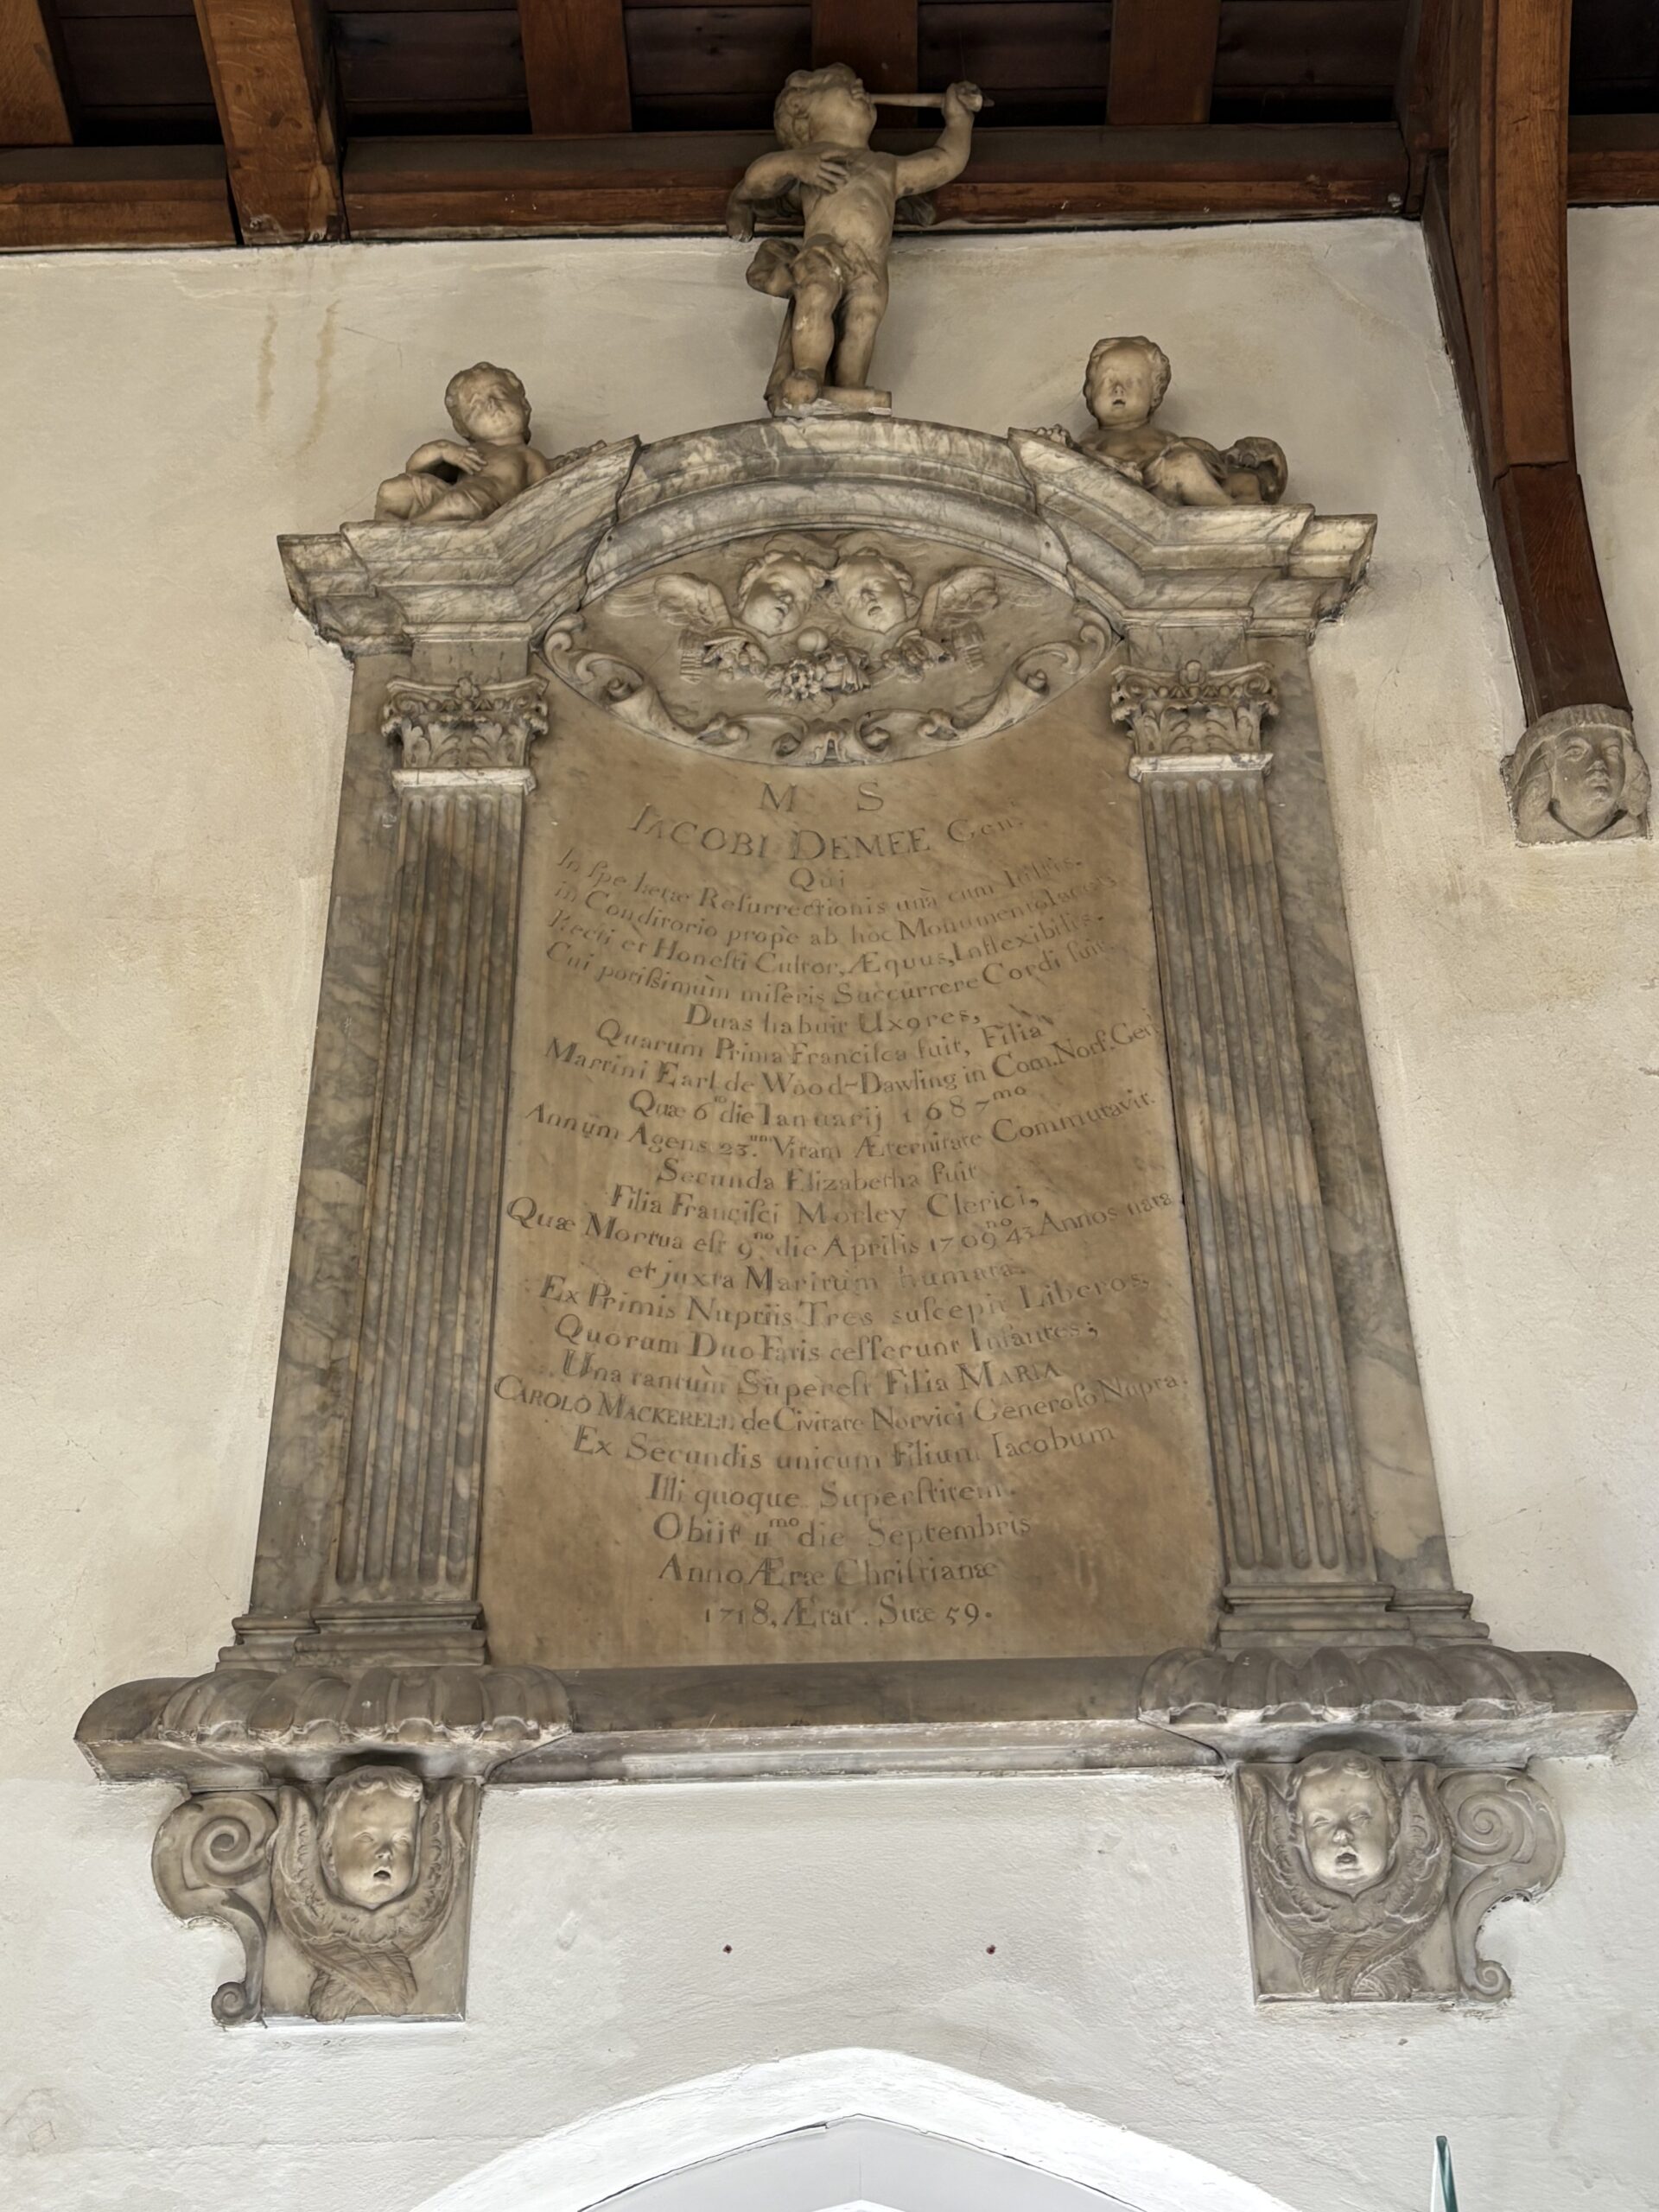 M S
IACOBI DEMEE Gen:
Qui
In ſpe lætæ Reſurrectionis unà cum Iuſtis.
in Conditorio propè ab hòc Monumento Iacet;
Recti et Honeſti Cultor, Æquus, Inflexibilis.
Cui potiſsimùm miſeris Succurrere Cordi fuit.
Duas habuit Uxores,
Quarum Prima Franciſca fuit, Filia
Martini Earl de Wood-Dawling in Com. Norf. Gen:
Quæ 6to die Ianuarij 1687mo
Annum Agens 23.um Vitam Æternitate Commutavit.
Secunda Elizabetha fuit
Filia Franciſci Morley Clerici,
Quæ Mortua eſt 9no die Aprilis 1709no 43 Annos nata
et juxta Maritum humata.
Ex Primis Nuptiis Tres suſcepit Liberos,
Quorum Duo Fatis ceſſerunt Infantes;
Una tantùm Supereſt Filia MARIA
CAROLO MACKERELL de Civitate Norvici Generoſo Nupta.
Ex Secundis unicum Filium Iacobum
Illi quoque Superſtitem.
Obiit 11mo die Septembris
Anno Æræ Chriſtianæ
1718, Ætat. Suæ 59.